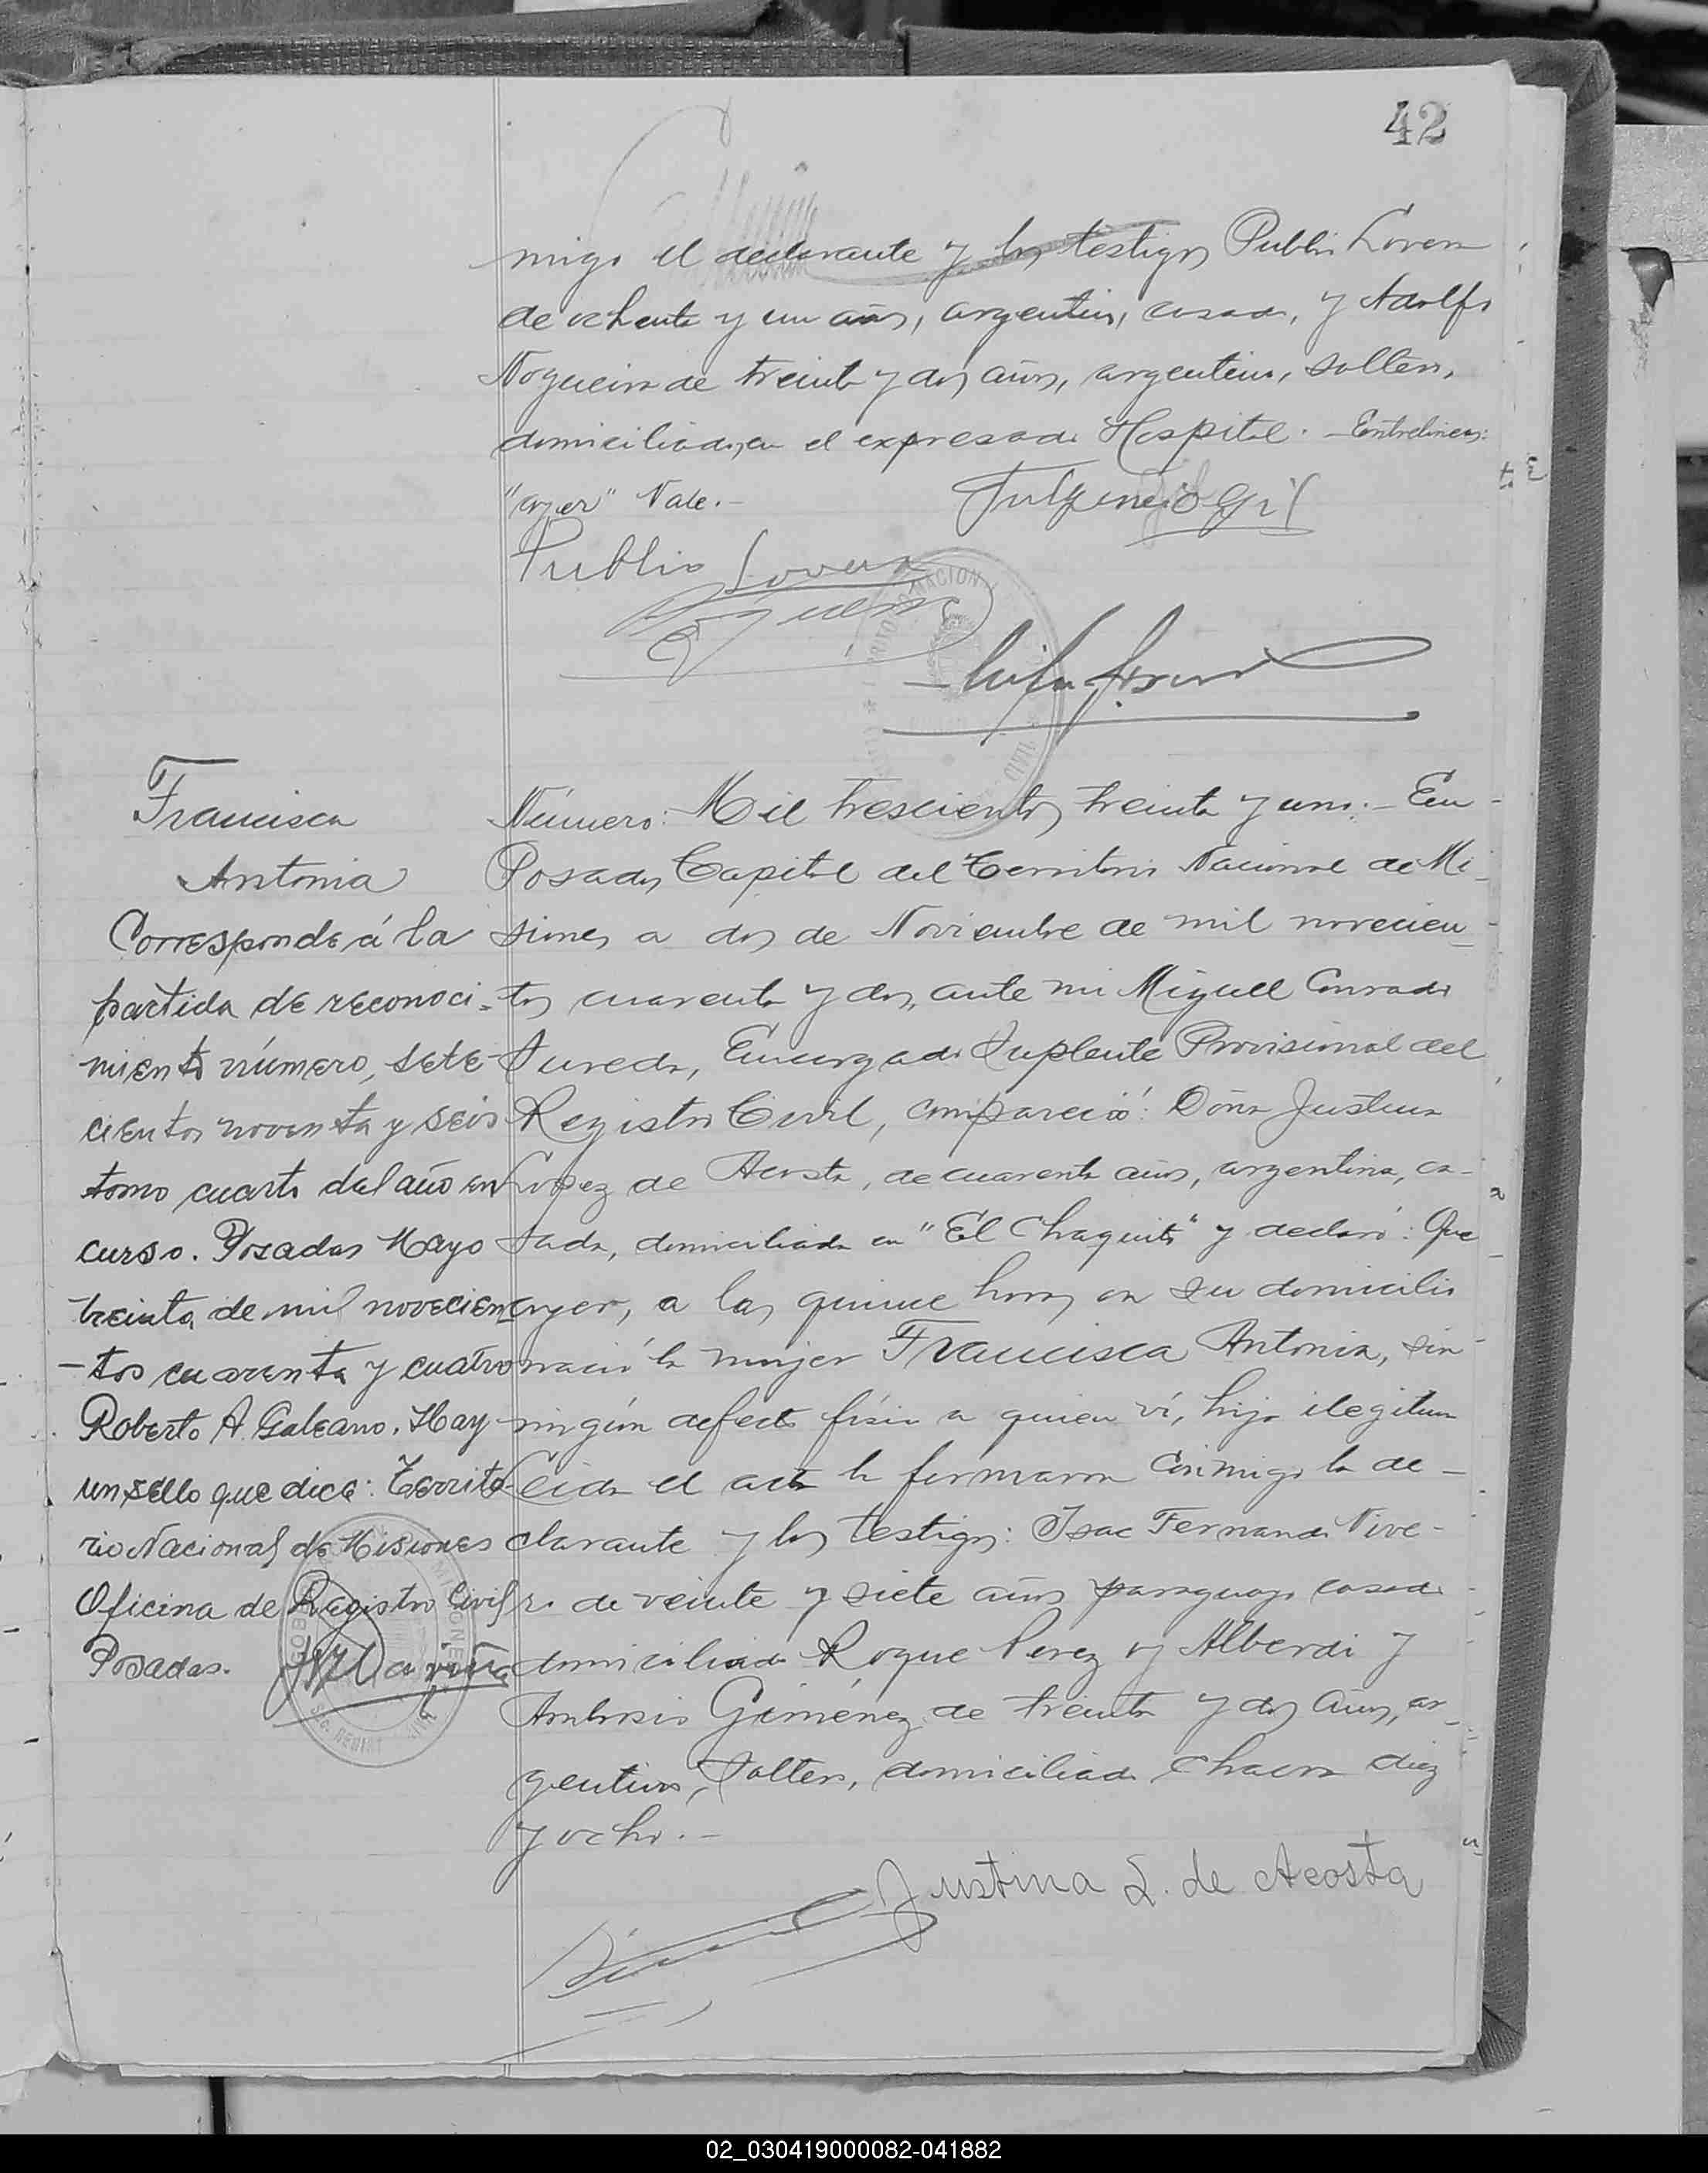 42
migo el declarante y los testigos Publio Lovera
de ochenta y un años, argentino, casado, y Adolfo
Nogueira de treinta y dos años, argentino, soltero,
domiciliados en el expresado Hospital. - Entrelineas:
"ayer" Vale. -
Fulgencio Gil
Publio Lovera
Francisca
Antonia
Corresponde á la
partida de reconoci-
miento número, sete-
cientos noventa y seis
tomo cuarto del año en
curso. Posadas Mayo
treinta de mil novecien
-tos cuarenta y cuatro
Roberto A. Galeano. Hay
un sello que dice: Territo-
rio Nacional de Misiones
Oficina de Registro Civil
Posadas.
Número: Mil trescientos treinta y uno. - En
Posadas, Capital del Territorio Nacional de Mi-
siones a dos de Noviembre de mil novecien-
tos cuarenta y dos, ante mi Miguel Conrado
Sureda, Encargado Suplente Provisional del
Registro Civil, compareció: Doña Justina
Lopez de Acosta, de cuarenta años, argentina, ca-
sada, domiciliada en "El Chaquito" y declaró: Que
ayer, a las quince horas en su domicilio
nació la mujer Francisca Antonia, sin
ningún defecto físico a quien ví, hija ilegitima
Leida el acta la firmaron conmigo la de-
clarante y los testigos: Isac Fernando Vive-
ro de veinte y siete años paraguayo casado
domiciliado Roque Perez y Alberdi y
Ambrosio Giménez de treinta y dos años, ar-
gentino, soltero, domiciliado chacra diez
y ocho. -
Justina L. de Acosta
02_030419000082-041882